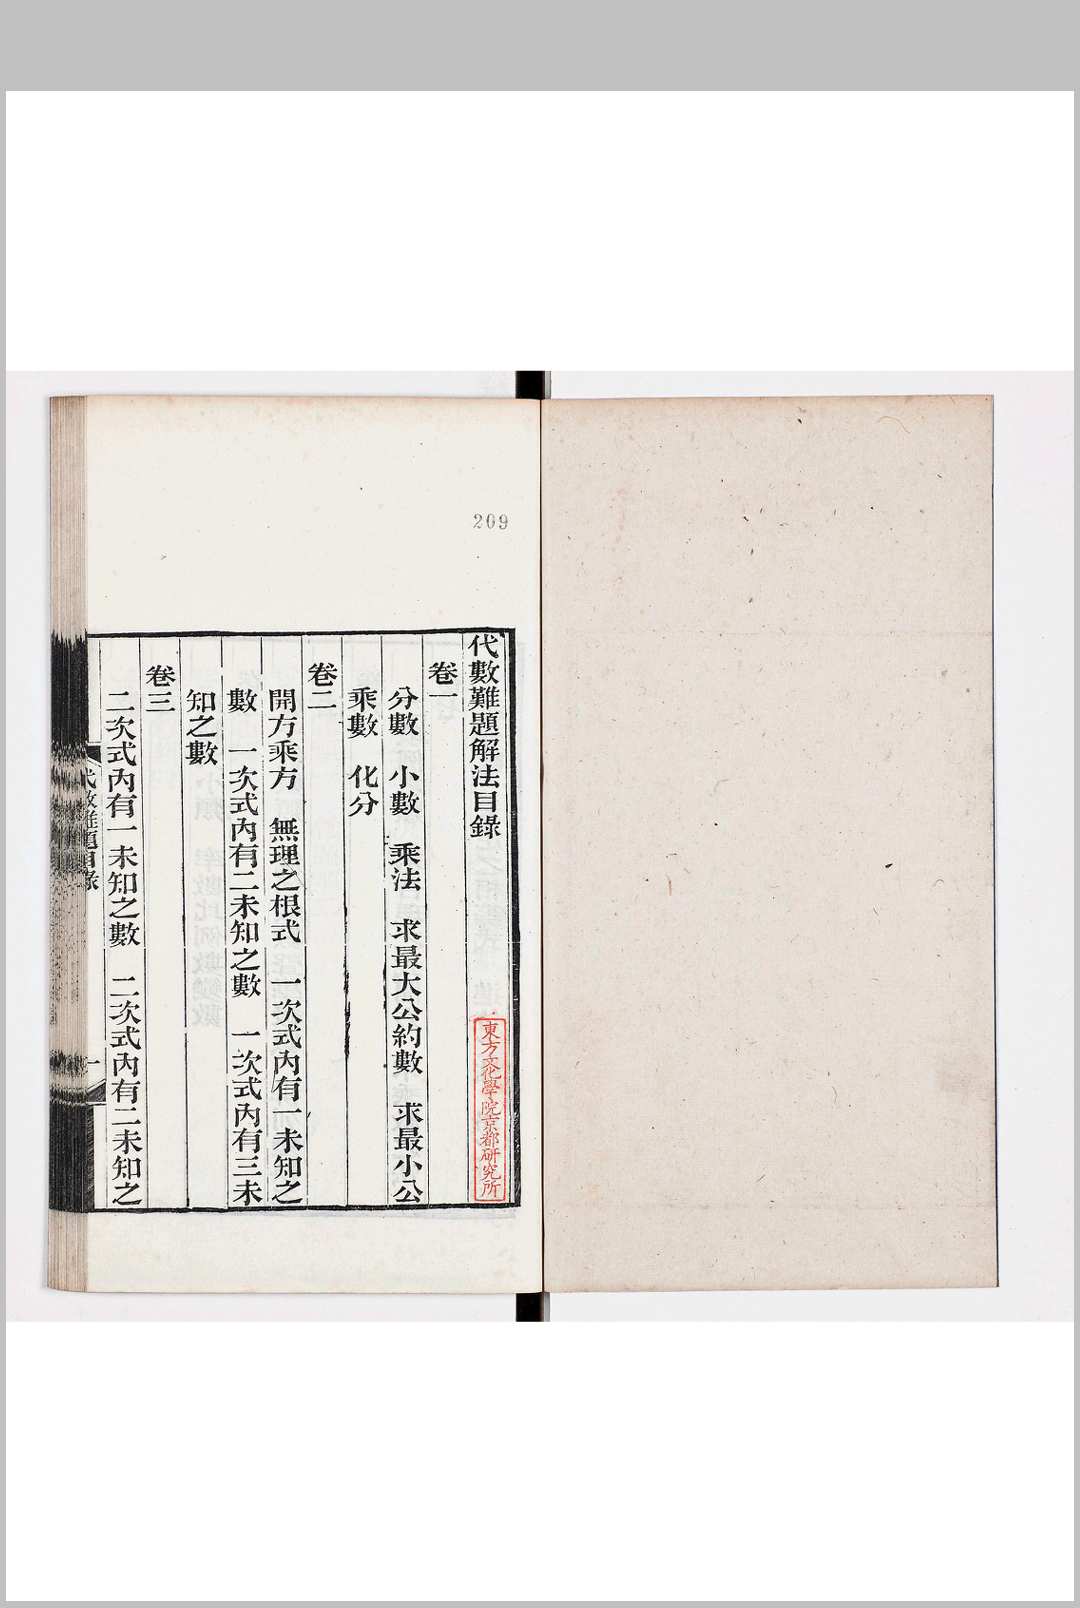 209
代數難題解法目錄
東方文化學院京都研究所
卷一
分數　小數　乘法　求最大公約數　求最小公
乘數　化分
卷二
開方乘方　無理之根式　一次式內有一未知之
數　一次式內有二未知之數　一次式內有三未
知之數
卷三
二次式內有一未知之數　二次式內有二未知之
代數難題目錄
一